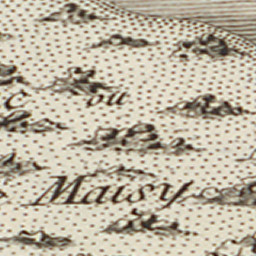 C ou
Maisy